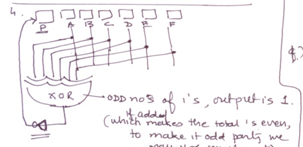 4.
P A B C D E F
XOR
→ ODD no's of 1's, output is 1.
It adds
(which makes the total 1's even,
to make it odd parity we